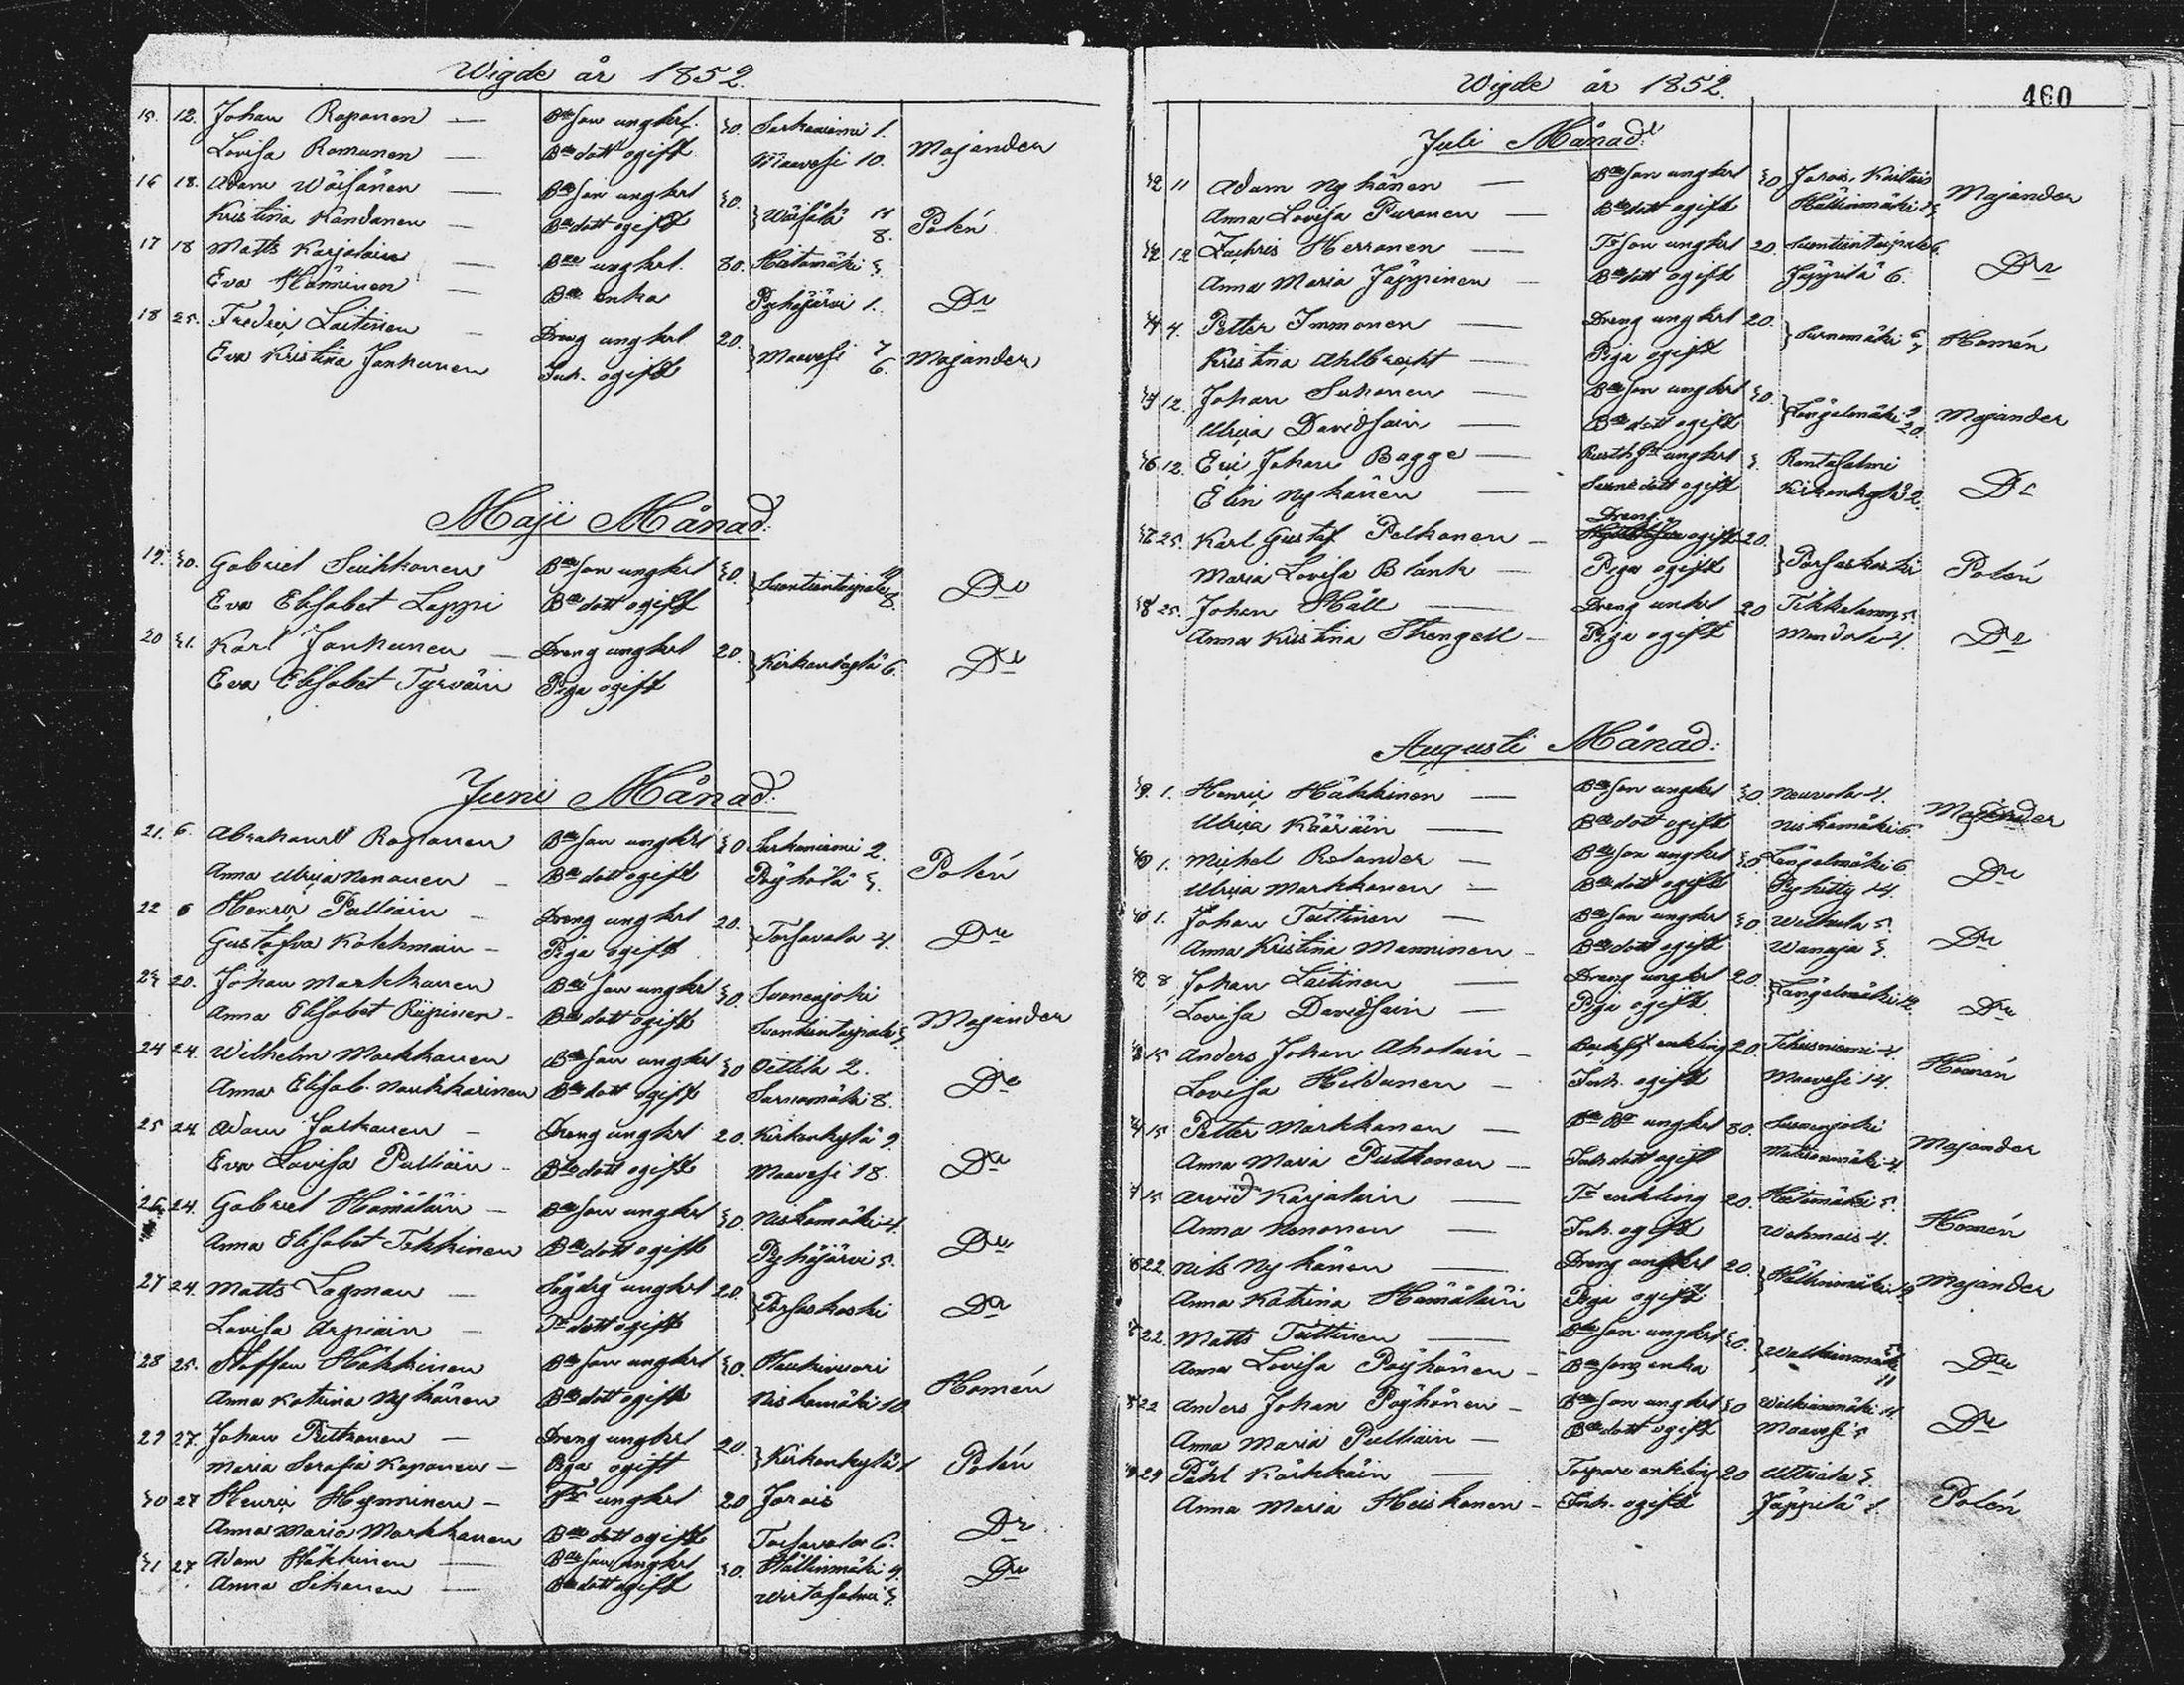 Wigde år 1852.
15. 12. Johan Roponen — Bde son ungkrl. 30. Sarkaniemi 1.
Lovisa Romunen — Bde dott ogift Maavesi 10. Majander
16 18. Adam Wäisänen — Bde son ungkrl 30. Wäisälä 11
Kristina Kandanen — Bde dott ogift 8. Polén
17 18 Matts Karjalain — Bde ungkrl. 30. Heitomäki 3.
Eva Häminen — Bde enka Pyhäjärvi 1. Do
18 25. Fredric Laitinen — Dreng ungkrl 20. Maavesi 7
Eva Kristina Jankunen Inh. ogift 6. Majander
Maji Månad.
19. 30. Gabriel Suihkonen Bde son ungkrl 30. Suontientaipale 10
Eva Elisabet Lappi Bde dott ogift 8. Do
20 31. Karl Jankunen — Dreng ungkrl 20. Kirkonkylä 6.
Eva Elisabet Tyrväin Piga ogift Do
Juni Månad.
21. 6. Abraham Roponen Bde son ungkrl 30 Sarkaniemi 2.
Anna Ulrica Nenonen — Bde dott ogift Pöyhölä 3. Polén
22 6 Henric Pulliain — Dreng ungkrl 20. Torsavala 4.
Gustafva Kolehmain — Piga ogift Do
23 20. Johan Markkanen Bde son ungkrl 30. Suonenjoki
Anna Elisabet Riipinen — Bde dott ogift Suontientaipale 3 Majander
24 24. Wilhelm Markkanen Bde son ungkrl 30 Oittila 2.
Anna Elisab. Naukkarinen Bde dott ogift Sarnamäki 8. Do
25 24. Adam Jaskanen — Dreng ungkrl 20. Kirkonkylä 9.
Eva Lovisa Pulliain — Bde dott ogift Maavesi 18. Do
26. 24. Gabriel Hämäläin — Bde son ungkrl 30 Niskamäki 4.
Anna Elisabet Tikkinen Bde dott ogift Pyhäjärvi 5. Do
27 24. Matts Lagman — ungkrl 20. Porsaskoski
Lovisa Arpiain — Tr dott ogift Do
28 25. Staffan Häkkinen Bde son ungkrl 30. Haukivuori
Anna Katrina Nykänen Bde dott ogift Niskamäki 10 Homén
29 27. Johan Putkonen — Dreng ungkrl 20. Kirkonkylä 1
Maria Serafia Kaponen — Piga ogift Polén
30 27 Henric Hyvönen — Tr ungkrl 20 Jorois
Anna Maria Markkanen Bde dott ogift Torsavala 6. Do
31 27 Adam Häkkinen — Bde son ungkrl 30. Hällinmäki 9.
Anna Sikanen — Bde dott ogift Wirtasalmi 3. Do
Wigde år 1852.
460
Juli Månad.
32 11 Adam Nykänen — Bde son ungkrl 30 Jorois, Kaitais
Anna Lovisa Puranen — Bde dott ogift Hällinmäki Majander
12 Zachris Herranen — Tr son ungkrl 20. Suontientaipale 6.
Anna Maria Jäppinen — Bde dott ogift Jäppilä 6. Do
34 4. Petter Immonen — Dreng ungkrl 20. Sarnamäki
Kristina Ahlbrecht — Piga ogift Homén
12. Johan Suhonen — Bde son ungkrl 30. Längelmäki 9
Ulrica Davidsain — Bde dott ogift 20. Majander
36 12. Eric Johan Bagge — ungkrl Rantasalmi
Elin Nykänen — dott ogift Kirkonkylä 2. Do
Dreng
37 25. Karl Gustaf Pelkonen — ogift 20. Porsaskoski
Maria Lovisa Blank — Piga ogift Polén
38 25. Johan Häll — Dreng unkrl 20 Tikkalanm 5.
Anna Kristina Strengell — Piga ogift Mondola 4. Do
Augusti Månad:
39. 1. Henric Häkkinen — Bde son ungkrl 30 Neuvola 4.
Ulrica Kääriäin — Bde dott ogift Niskamäki 5. Majander
40 1. Michel Rolander — Bde son ungkrl 30 Längelmäki 6
Ulrica Markkanen — Bde dott ogift Pyhitty 14. Do
1. Johan Teittinen — Bde son ungkrl 30 Wehula 5.
Anna Kristina Manninen — Bde dott ogift Wanaja 3. Do
42 8 Johan Laitinen — Dreng ungkrl 20. Längelmäki
Lovisa Davidsain — Piga ogift Do
43 15 Anders Johan Aholain — enkling 20. Tihusniemi 4.
Lovisa Heldunen — Inh. ogift Maavesi 14. Homén
44 15 Petter Markkanen — Bde Br ungkrl 30. Suonenjoki
Anna Maria Putkonen — Inh dott ogift 4 Majander
15 Arvid Karjalain — Tr enkling 20. Heitomäki 5.
Anna Nenonen — Inh. ogift Wehmais 4. Homén
22. Nils Nykänen — Dreng ungkrl 20. Hällinmäki
Anna Katrina Hämäläin Piga ogift Majander
22. Matts Teittinen — Bde son ungkrl 30. Walkiamäki
Anna Lovisa Pöyhönen — Bde sons enka 11 Do
22 Anders Johan Pöyhönen — Bde son ungkrl 30 Walkiamäki 11.
Anna Maria Pulliain — Bde dott ogift Maavesi 5 Do
29 Påhl Kärkkäin — Torpare enkling 20 Uttiala 3
Anna Maria Heiskanen — Inh. ogift Jäppilä 1. Polén